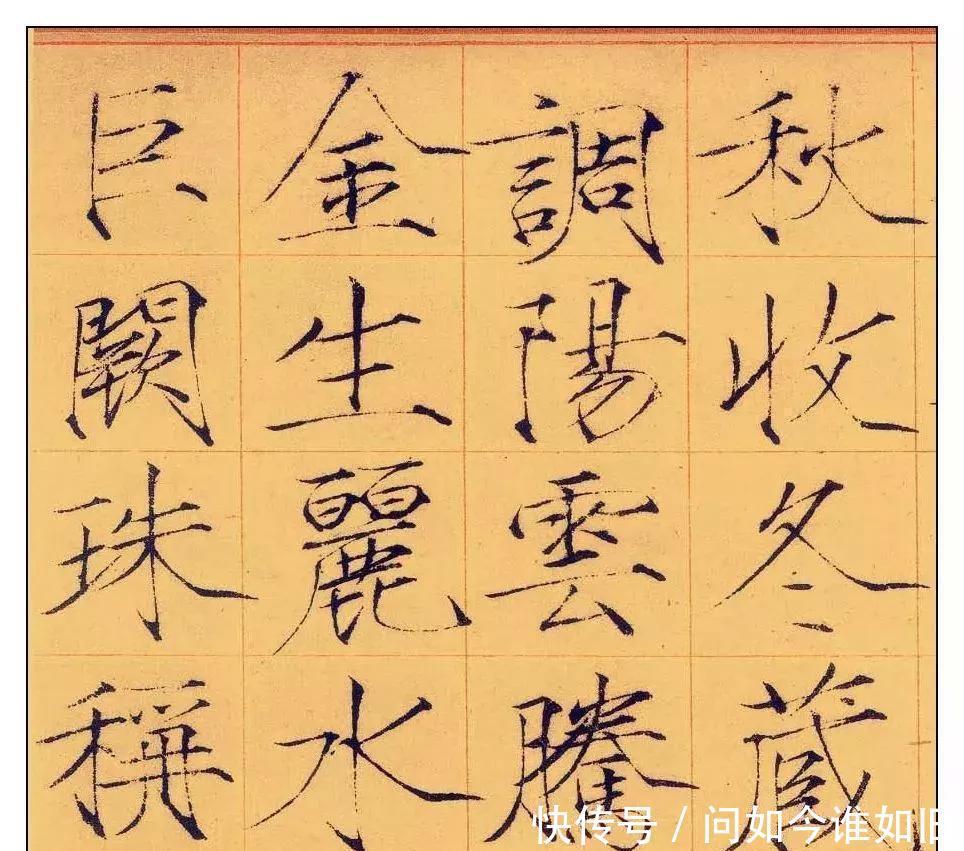 秋收冬藏
調陽雲騰
金生麗水
巨闕珠稱
快传号 / 问如今谁如旧